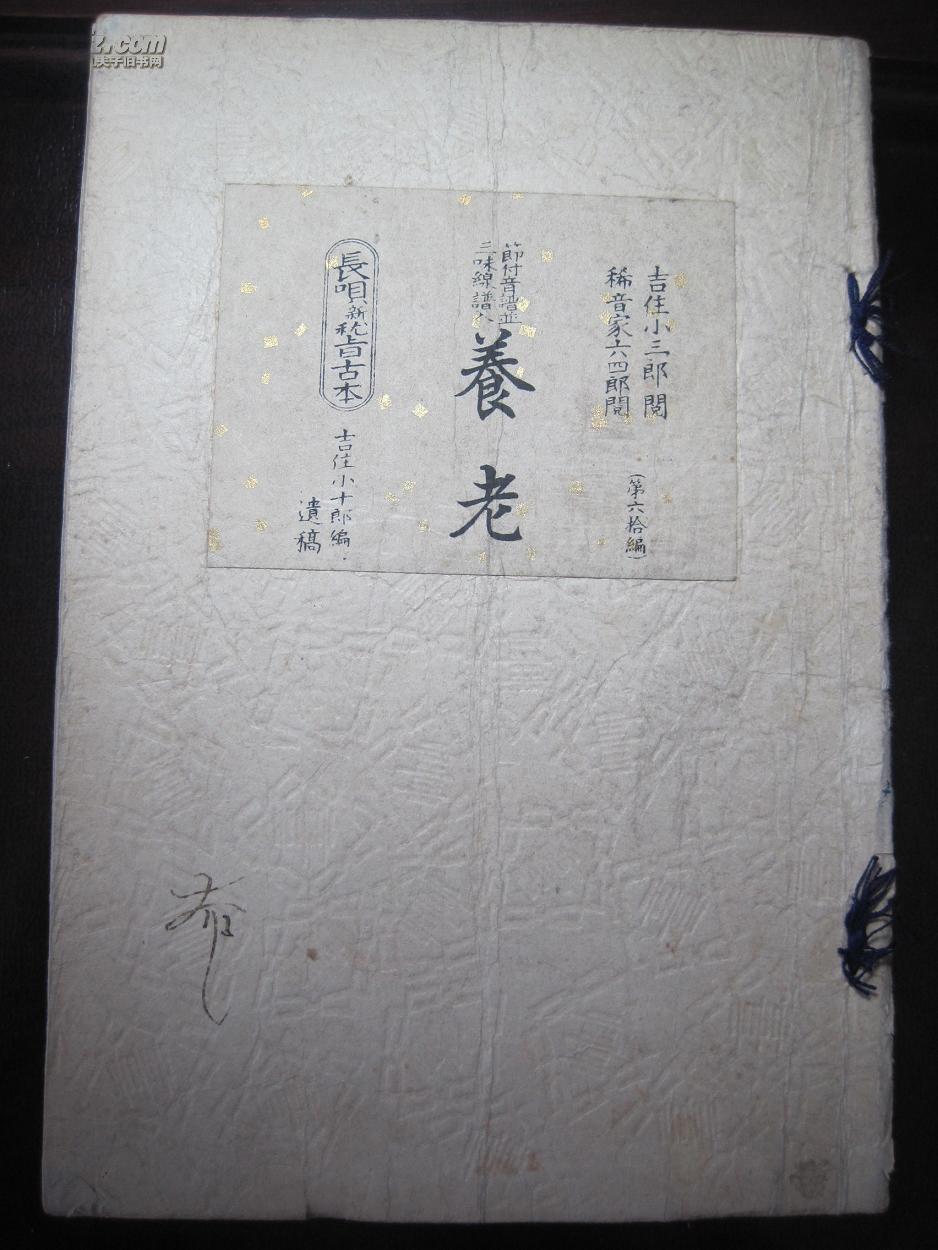 吉住小三郎閲
稀音家六四郎閲
(第六拾編)
節付音譜並
三味線譜入
養老
長唄新稽古本
吉住小十郎編・
遺稿
z.com
夫子旧书网